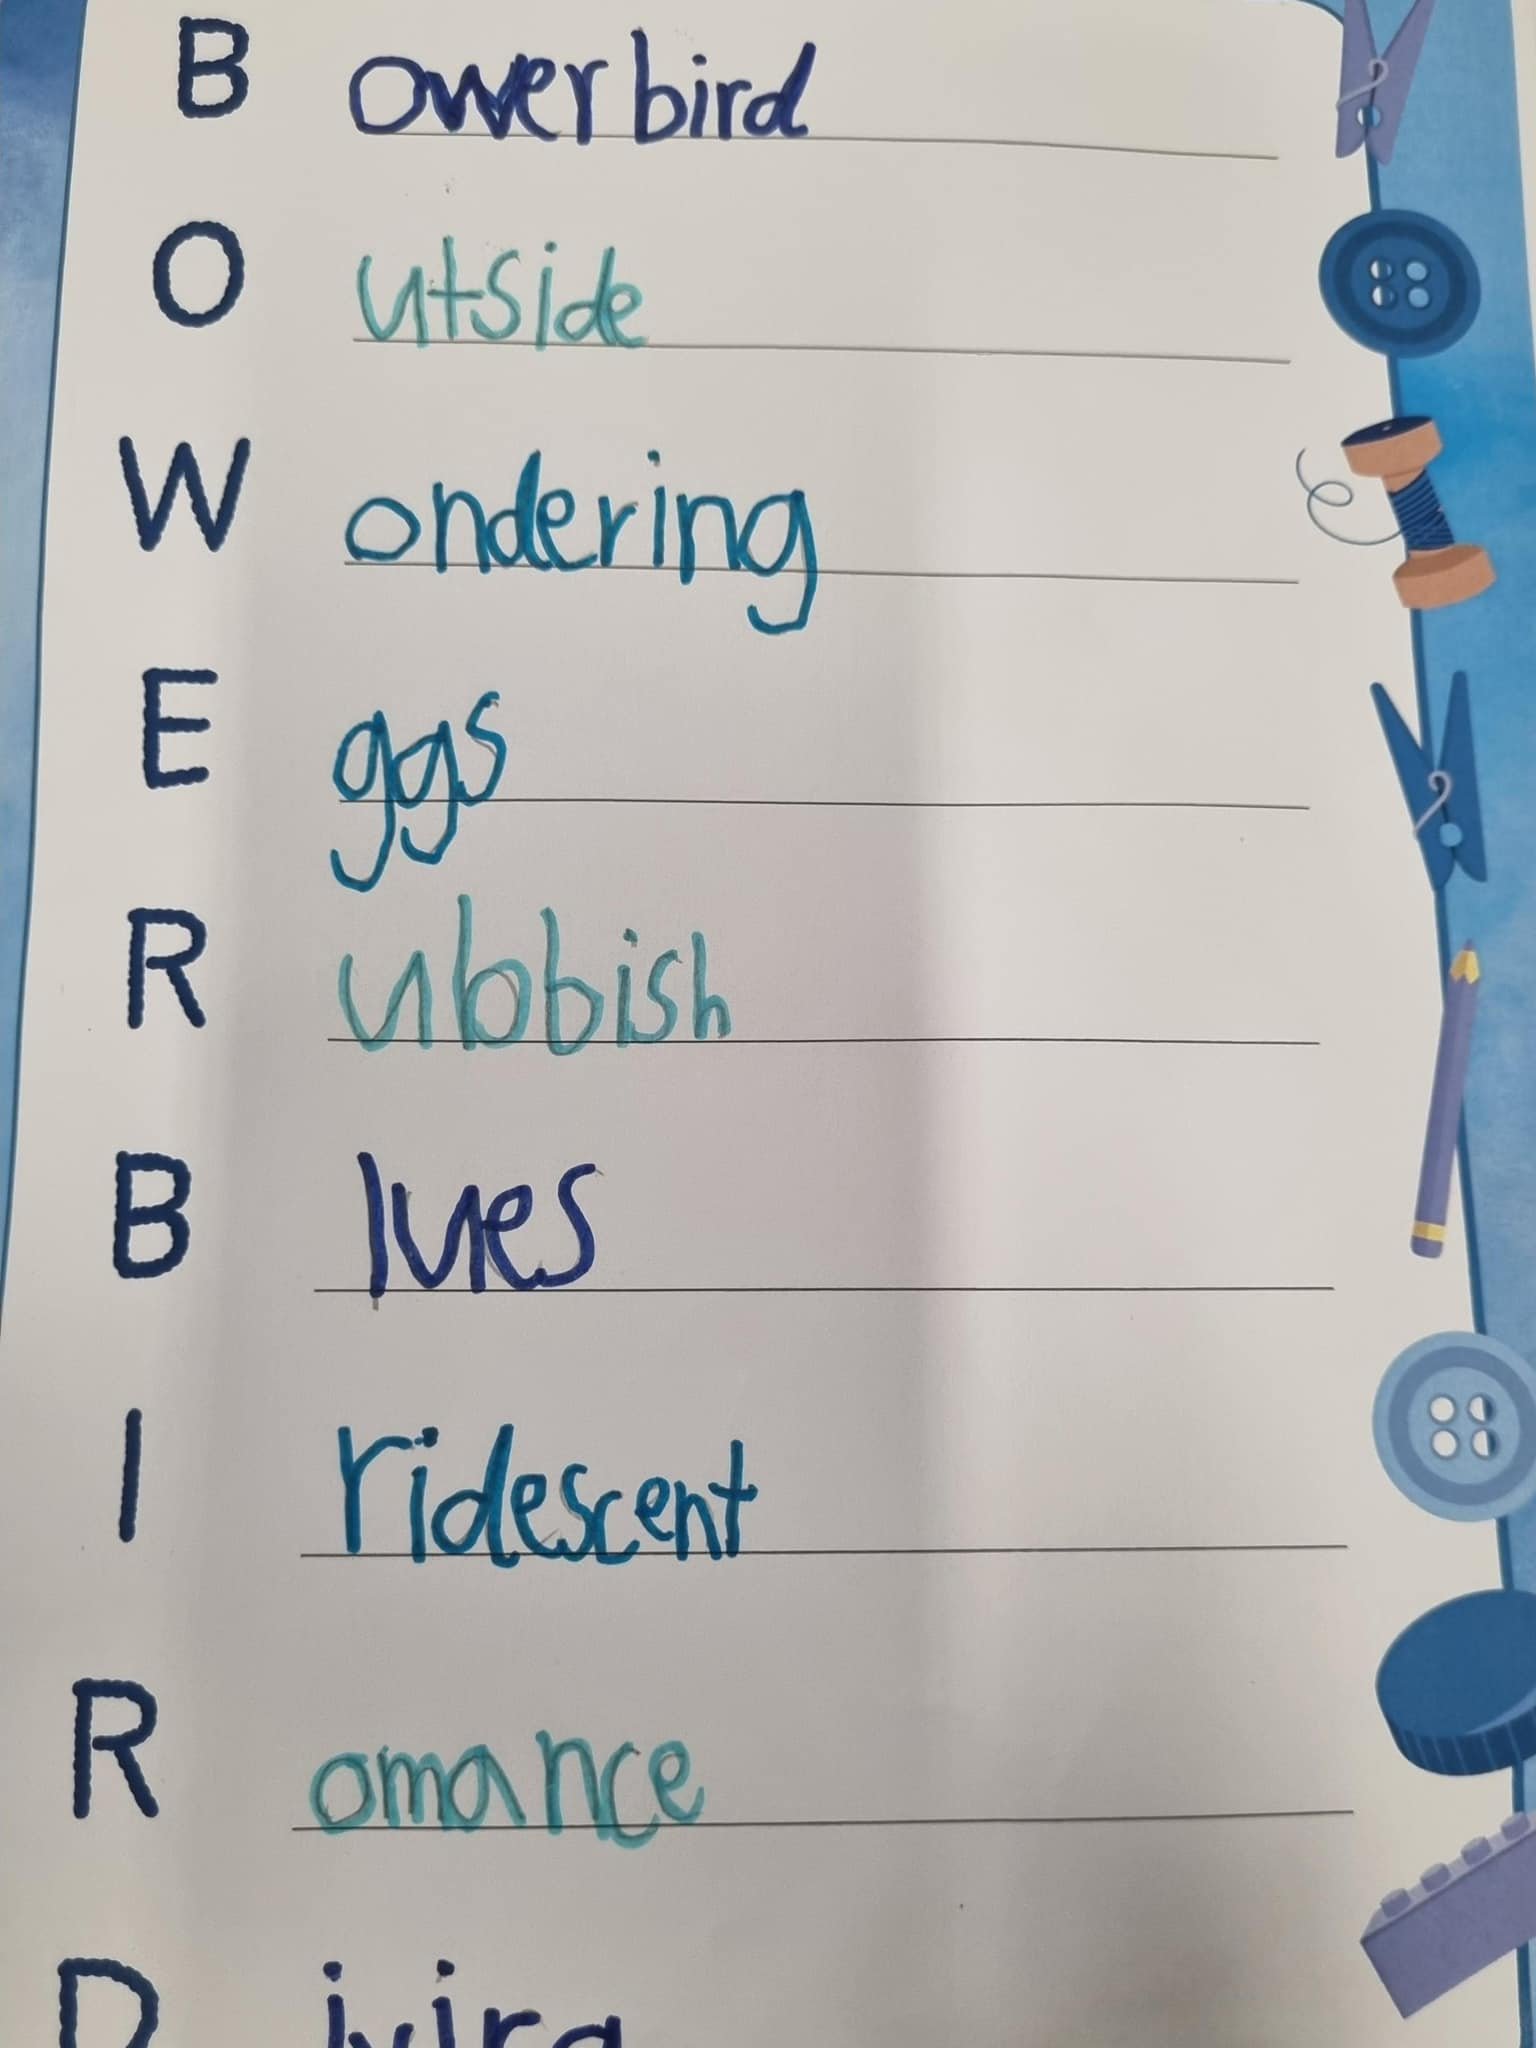 B ower bird
O utside
W ondering
E ggs
R ubbish
B lues
I ridescent
R omance
D